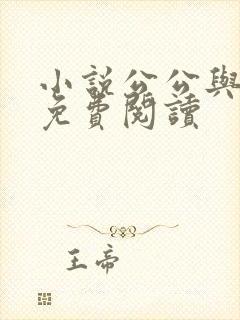 小說公公與
免費閱讀
王帝